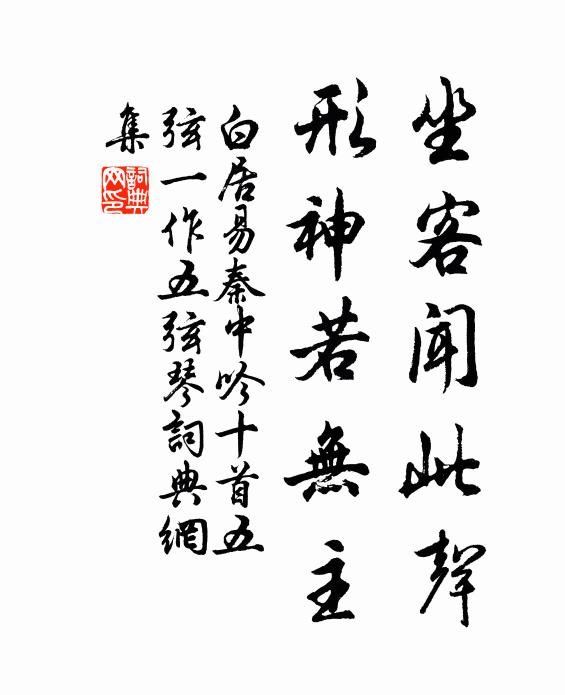 坐客聞此聲
形神若無主
白居易秦中吟十首五
弦一作五弦琴詞典網
集
詞典
网印